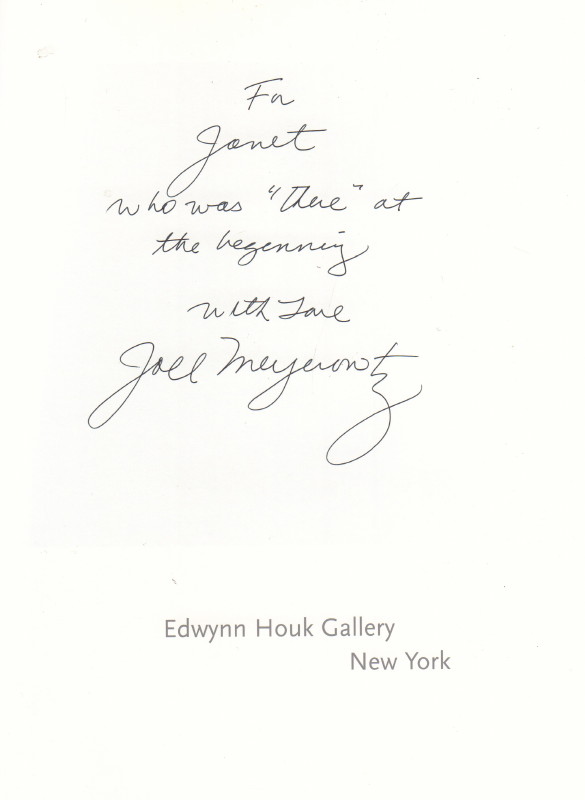 For
Janet
who was "there" at
the beginning
with Love
Joel Meyerowitz
Edwynn Houk Gallery
New York